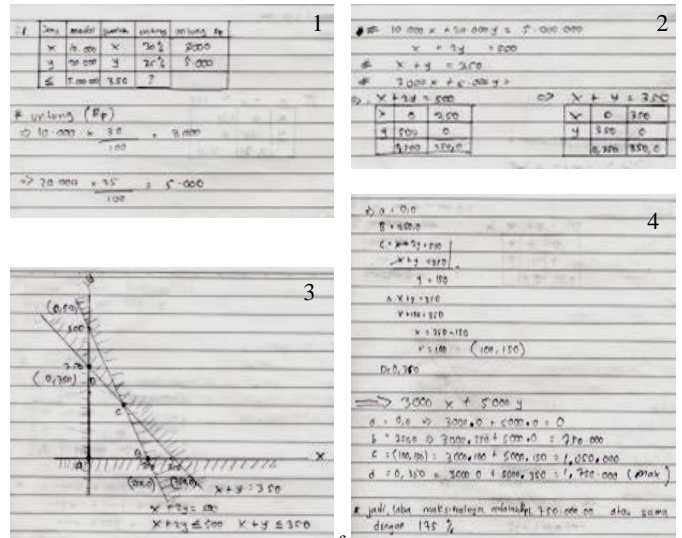 1
Jenis modal jumlah untung untung Rp
x 10.000 x 30% 3000
y 20.000 y 25% 5.000
≤ 350 ?
# untung (Rp)
=> 10.000 x 30/100 = 3.000
=> 20.000 x 25/100 = 5.000
2
# 10.000 x + 20.000 y = 5.000.000
x + 2y = 500
# x + y = 350
# 3000 x + 5.000 y =
x + 2y = 500
x 0 250
y 500 0
=> x + y = 350
x 0 350
y 350 0
0,350 350,0
3
y
500
350
(0,350)
D
C
B
x
x + y = 350
x + 2y = 500
x + 2y ≤ 500 x + y ≤ 350
4
a = 0,0
B = 250,0
C = x + 2y = 500
x + y = 350
y = 150
x + y = 350
x = 350-150
(100,150)
D = 0,350
=> 3000 x + 5000 y
a = 0,0 => 3000.0 + 5000.0 = 0
c = (100,150) = 3000.100 + 5000.150 = 1.050.000
d = 0,350 = 3000 0 + 5000.350 = 1.750.000 (max)
* jadi, laba maksimalnya 1.750.000 00 atau sama
dengan 175 %